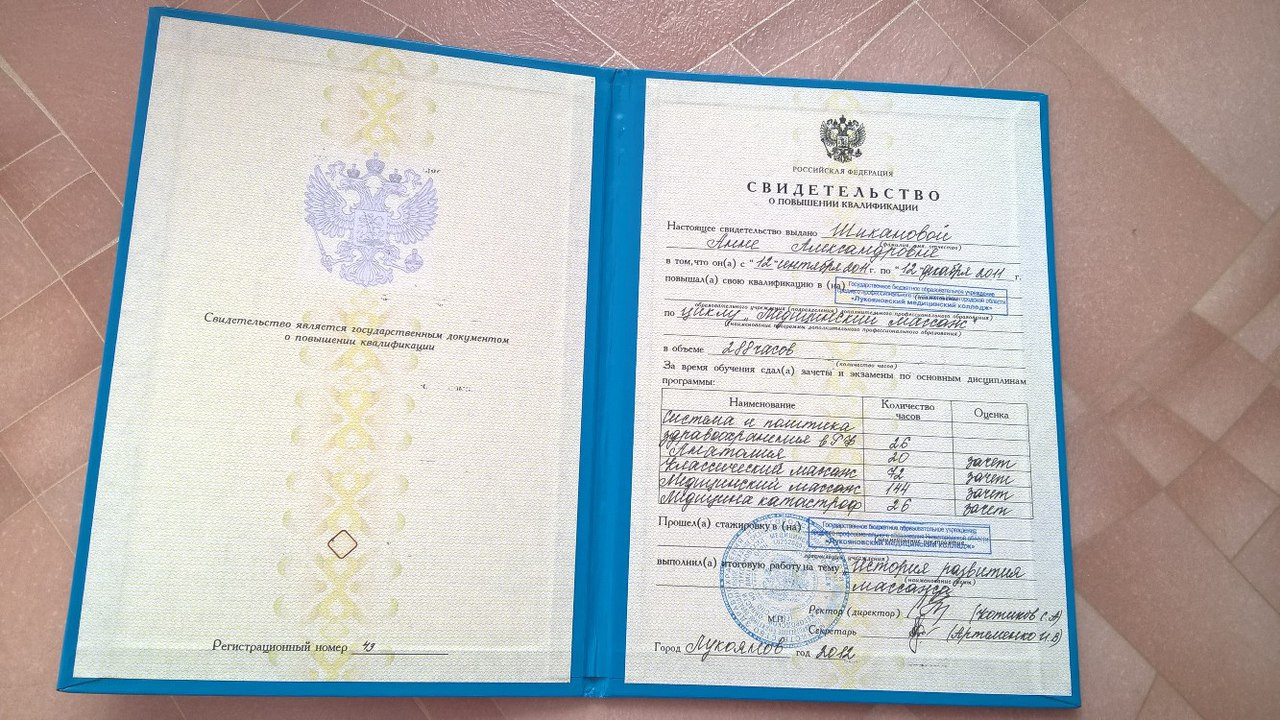 Свидетельство является государственным документом
о повышении квалификации
Регистрационный номер 43
РОССИЙСКАЯ ФЕДЕРАЦИЯ
СВИДЕТЕЛЬСТВО
О ПОВЫШЕНИИ КВАЛИФИКАЦИИ
Настоящее свидетельство выдано Шикановой
(фамилия, имя, отчество)
Анне Александровне
в том, что он(а) с "12" сентября 2011 г. по "12" декабря 2011 г.
повышал(а) свою квалификацию в (на)
Государственное бюджетное образовательное учреждение
среднего профессионального образования Нижегородской области
«Лукояновский медицинский колледж»
образовательного учреждения (подразделения) дополнительного профессионального образования)
по циклу „Медицинский массаж"
(наименование программы дополнительного профессионального образования)
в объеме 288 часов
(количество часов)
За время обучения сдал(а) зачеты и экзамены по основным дисциплинам
программы:
Наименование Количество часов Оценка
Система и политика
здравоохраненья в РФ 26
Анатомия 20 зачет
Классический массаж 72 зачет
Медицинский массаж 144 зачет
Медицина катастроф 26 зачет
Прошел(а) стажировку в (на)
Государственное бюджетное образовательное учреждение
среднего профессионального образования Нижегородской области
«Лукояновский медицинский колледж»
выполнил(а) итоговую работу на тему „История развития
(наименование темы)
массажа
Ректор (директор) (Котиков С.А)
М.П.
Секретарь (Артеменко И.В)
Город Лукоянов год 2012